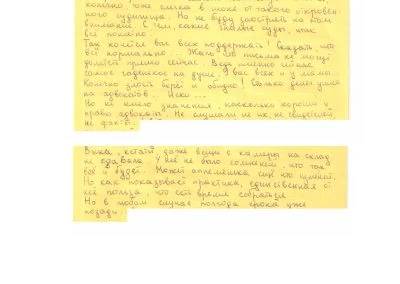 конечно, тоже слегка в шоке от такого откровен-
ного судилища. Но не буду заострять на этом
внимание. С тем, какие наши суды, итак
всё понятно.
Так хочется вас всех поддержать! Сказать, что
всё нормально... Жаль, что письма не могут
долететь прямо сейчас. Ведь именно сейчас
самое гаденькое на душе. У вас всех и у мамы.
Конечно злость берёт и обидно! Сколько денег ушло
на адвокатов... Иски...
Но не имело значения, насколько хороши и
правы адвокаты. Не слушали ни их, ни свидетелей,
ни факты.
Вика, кстати даже вещи с камеры на склад
не сдавала. У неё не было сомнений, что так
всё и будет. Может апелляшка ещё что изменит.
Но как показывает практика, единственная от
неё польза, что есть время собраться.
Но в любом случае полгода срока уже
позади.